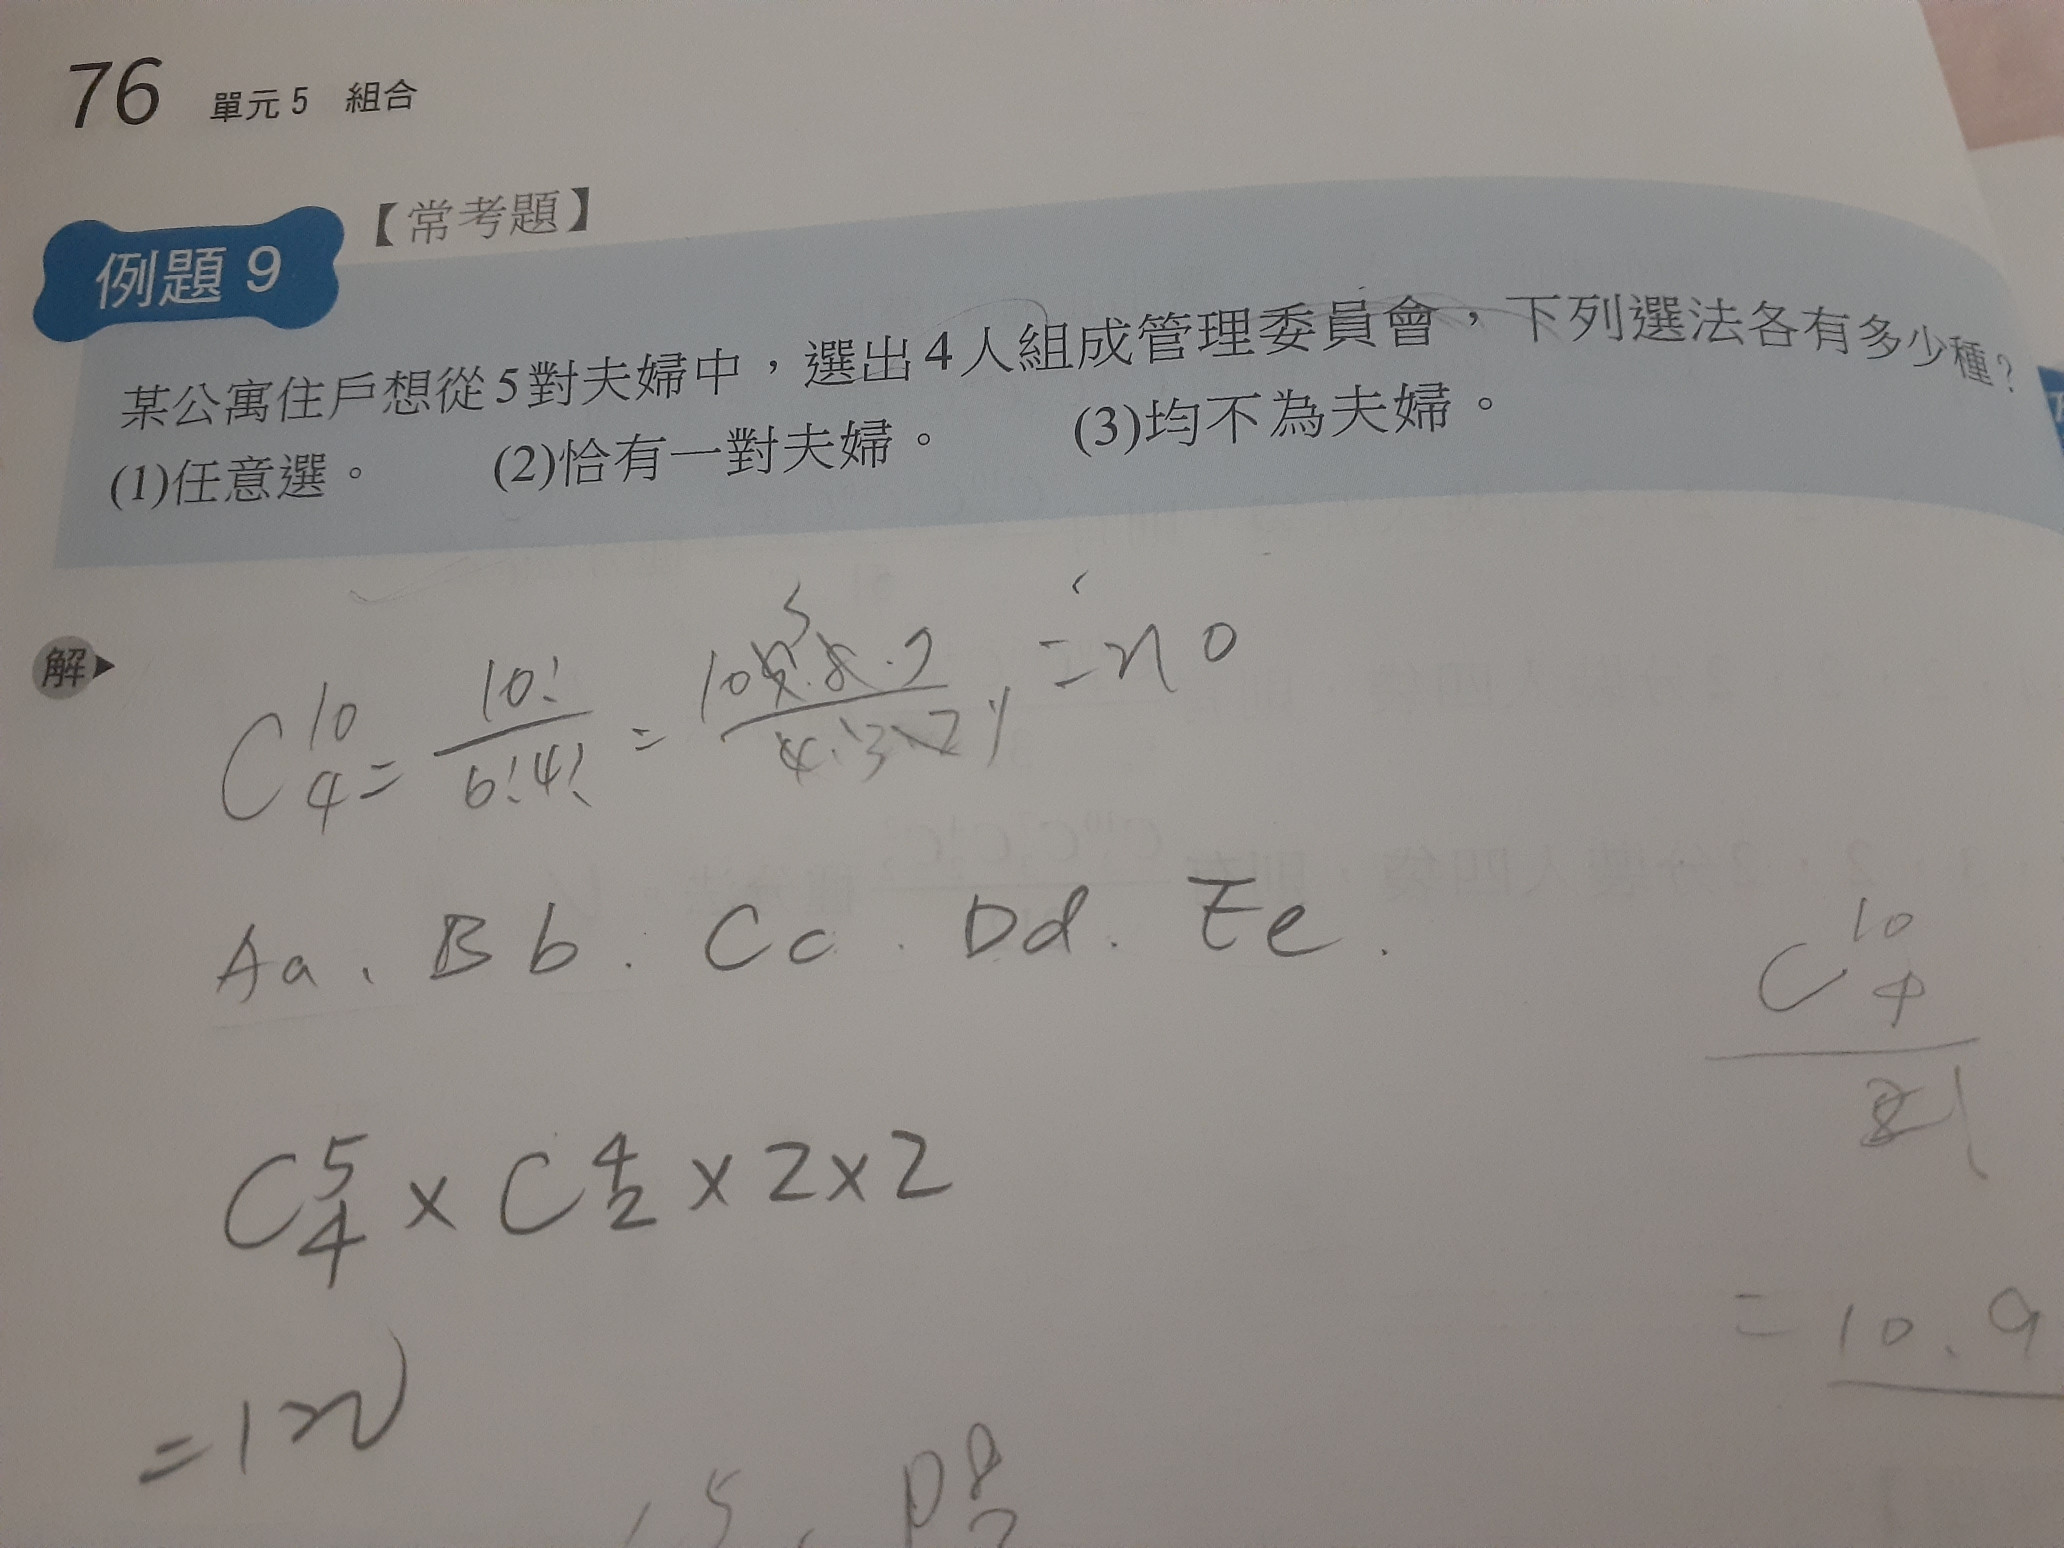 76 單元 5 組合
【常考題】
例題 9
某公寓住戶想從5對夫婦中，選出4人組成管理委員會，下列選法各有多少種？
(1)任意選。 (2)恰有一對夫婦。 (3)均不為夫婦。
解
C 10 4 = 10! / 6!4! = 10·9·8·7 / 4·3·2·1 = 210
Aa、Bb．Cc．Dd．Ee．
C 10 4
C 5 4 × C 4 2 × 2 × 2
= 10.9
= 120
5. P 8